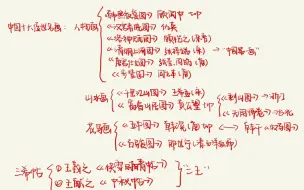 《韩熙载夜宴图》顾闳中 top
中国十大传世名画：人物画
《汉宫春晓图》仇英
《洛神赋图》顾恺之（东晋）
《清明上河图》张择端（宋）→"中国第一画"
《唐宫仕女图》张萱、周昉（唐）
《步辇图》阎立本（唐）
山水画《千里江山图》王希孟（宋） 《剩山图》→浙江
《富春山居图》黄公望（元） 《无用师卷》→台北
花鸟画《五牛图》韩滉（唐）top 韩干《牧马图》
《百骏图》郎世宁
三希帖 ①王羲之《快雪时晴帖》
②王献之《中秋帖》 "二王"